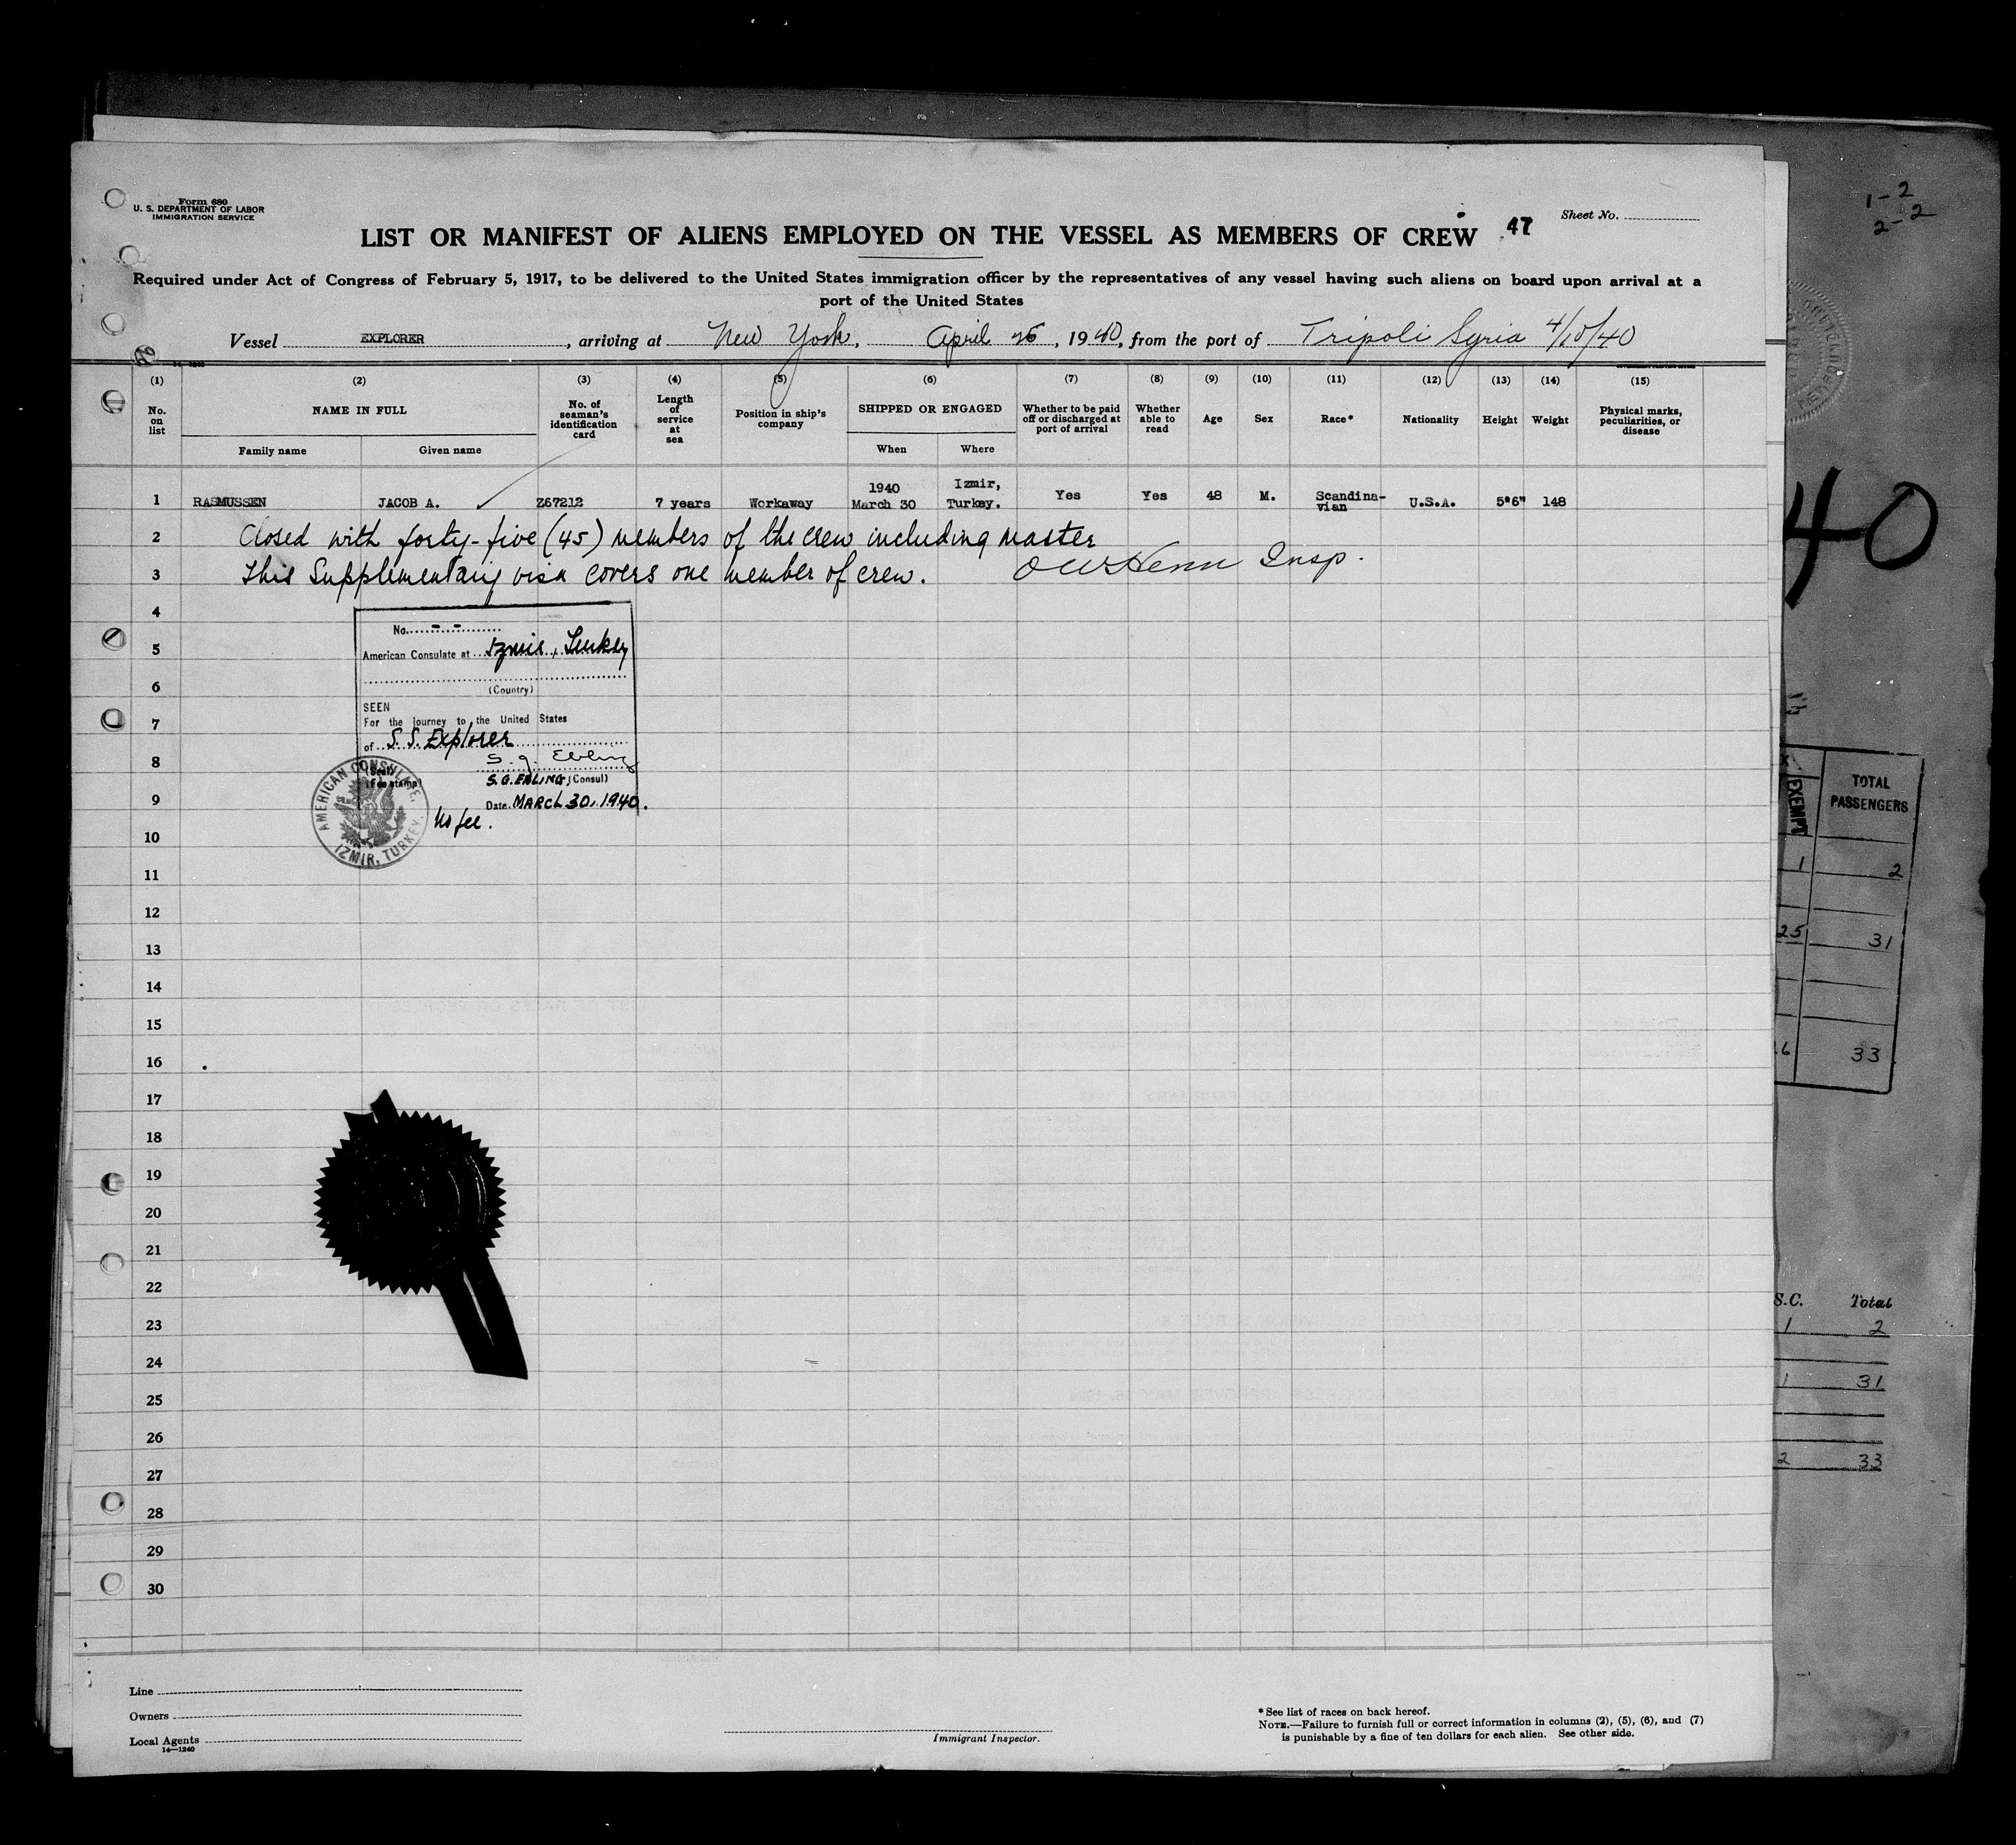 Form 680
U. S. DEPARTMENT OF LABOR
IMMIGRATION SERVICE
Sheet No.
LIST OR MANIFEST OF ALIENS EMPLOYED ON THE VESSEL AS MEMBERS OF CREW 47
Required under Act of Congress of February 5, 1917, to be delivered to the United States immigration officer by the representatives of any vessel having such aliens on board upon arrival at a
port of the United States
Vessel EXPLORER, arriving at New York, April 26, 1940, from the port of Tripoli Syria 4/10/40
(1) (2) (3) (4) (5) (6) (7) (8) (9) (10) (11) (12) (13) (14) (15)
No. on list
NAME IN FULL
Family name
Given name
No. of seaman's identification card
Length of service at sea
Position in ship's company
SHIPPED OR ENGAGED
When
Where
Whether to be paid off or discharged at port of arrival
Whether able to read
Age
Sex
Race*
Nationality
Height
Weight
Physical marks, peculiarities, or disease
1 RASMUSSEN JACOB A. Z67212 7 years Workaway 1940 March 30 Izmir, Turkey. Yes Yes 48 M. Scandina-vian U.S.A. 5'6" 148
2 Closed with forty-five (45) members of the crew including master
3 This Supplementary visa covers one member of crew. Insp.
4
No. - -
5
American Consulate at Izmir, Turkey
6
(Country)
SEEN
7
For the journey to the United States
of S.S. Explorer
8
S. G. Ebling
(Seal)
(Fee stamp)
S.G. EBLING, (Consul)
9
Date MARCH 30, 1940.
No fee.
AMERICAN CONSULATE,
IZMIR, TURKEY.
10
11
12
13
14
15
16
17
18
19
20
21
22
23
24
25
26
27
28
29
30
Line
Owners
Local Agents
14—1240
Immigrant Inspector.
* See list of races on back hereof.
NOTE.—Failure to furnish full or correct information in columns (2), (5), (6), and (7)
is punishable by a fine of ten dollars for each alien. See other side.
1-2
2-2
40
EXEMPT
TOTAL
PASSENGERS
1 2
25 31
33
S.C. Total
1 2
1 31
2 33